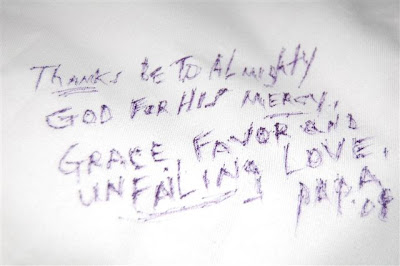 Thanks be TO ALmighty
GOD FOR HIS MERCY,
GRACE, FAVOR AND
UNFAILING LOVE.
PAPA